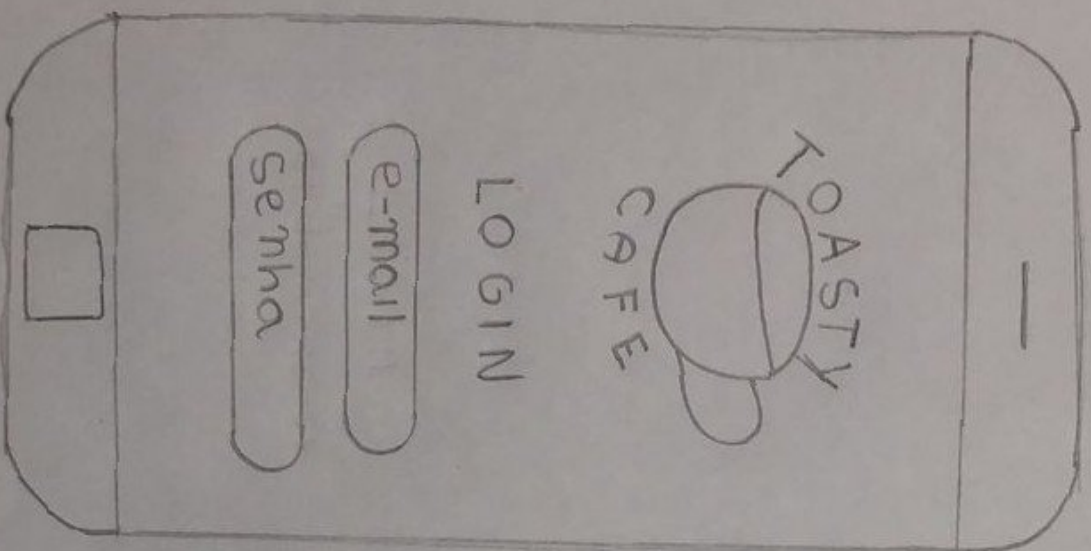 TOASTY
CAFE
LOGIN
e-mail
senha